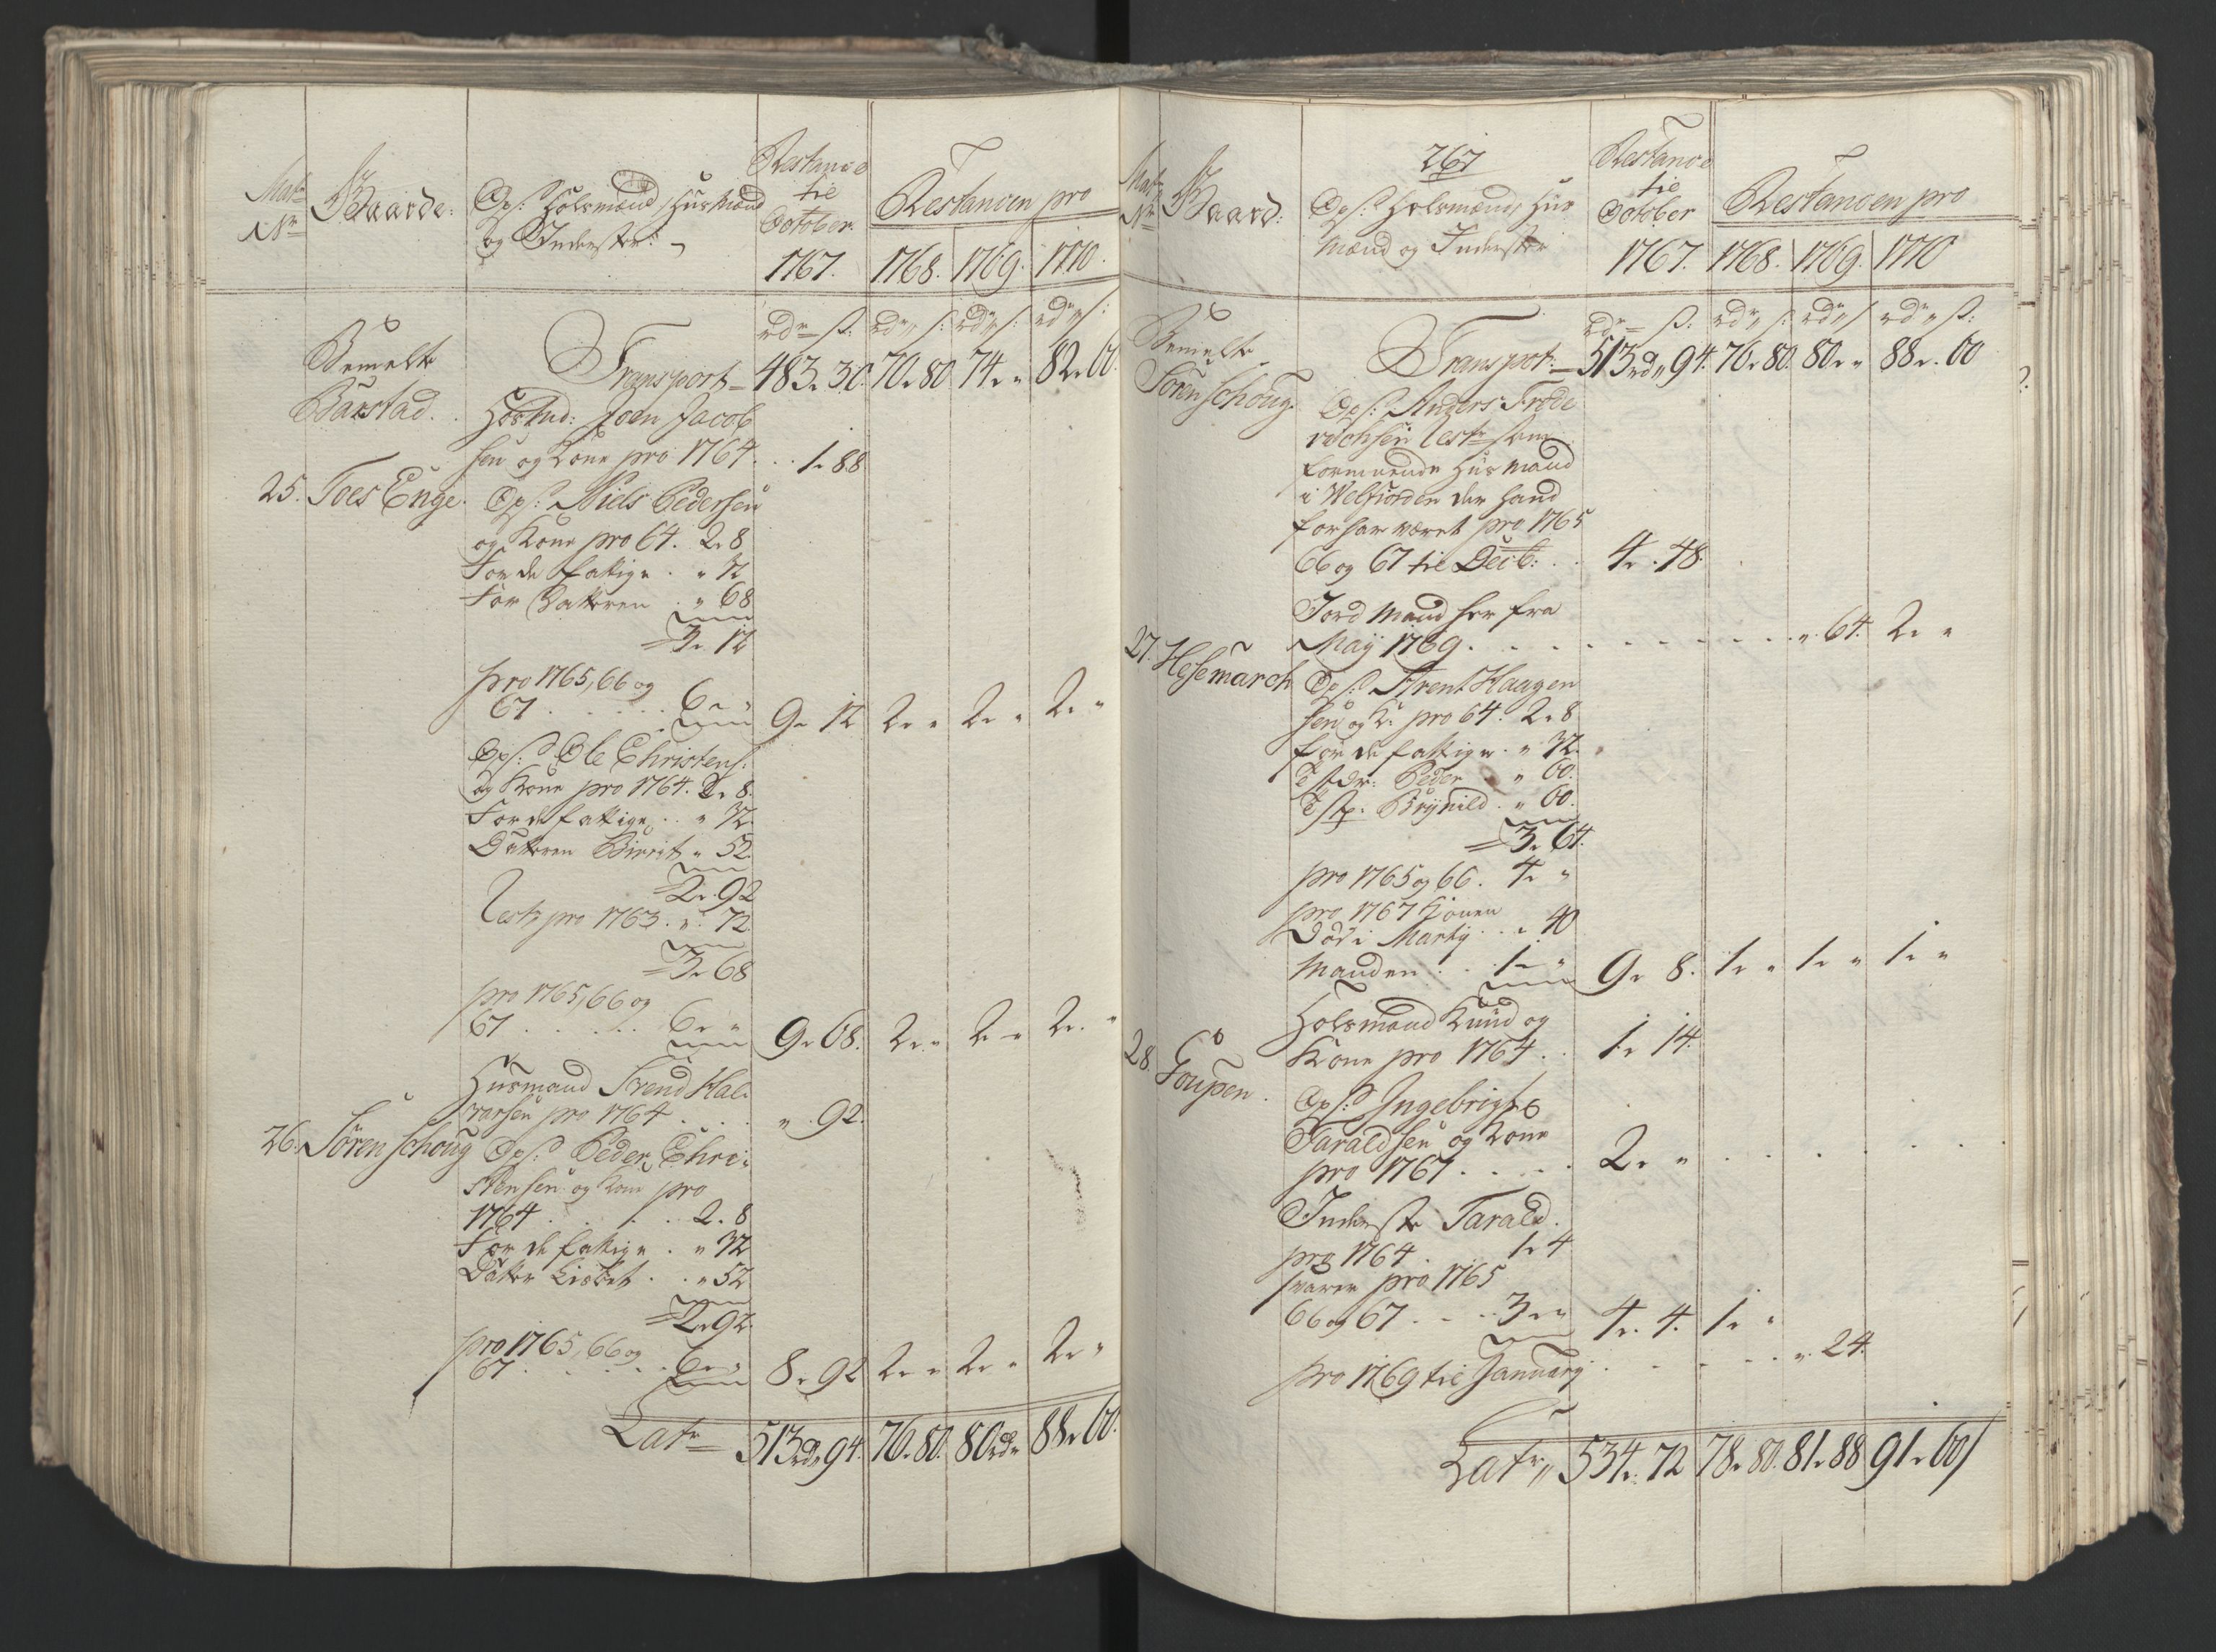 Mat:
Nr
Gaarde:
Ops: Holsmænd, Huusmænd
og Inderster:
Restance
til
October
1767.
Restancen pro
1768. 1769. 1770.
rdr s: rdr s: rdr s: rdr s:
Bemelte
Baustad.
Transport 483 " 30. 70 " 80 74 " " 82 " 60.
Joen Jacob
sen og Kone pro 1764 . . 1 " 88
25. Toes Enge.
Ops: Niels Pedersen
og Kone pro 64. 2 " 8
For de fattige . " 32
For Datteren . " 68
3 " 12
pro 1765, 66 og
67 . . . . . 6 " "
9 " 12 2 " " 2 " " 2 " "
Ops: Ole Christens:
og Kone pro 1764. 2 " 8.
For de fattige . . " 32.
Datteren Birrit " 52.
2 " 92
Rest pro 1763 . " . 72
3 " 68
pro 1765, 66 og
67 . . . . . 6 " "
9 " 68. 2 " " 2 " " 2 " "
Huusmand Trend Hal
varsen pro 1764 . . . " . 92.
26. Sören schoug
Ops: Peder Chri
stensen og Kone pro
1764 . . . . 2 . 8
For de fattige . " 32
Datter Lisbet . . " 52
2 " 92.
pro 1765, 66 og
67 . . . . . 6 " "
8 " 92 2 " " 2 " " 2 " "
Latr 513 rdr 94. 76 " 80. 80 rdr " 88 " 60.
267
Mat:
Nr
Gaard:
Ops: Holsmænd, Huus
Mænd og Inderster
Restance
til
October
1767.
Restancen pro
1768. 1769. 1770
rdr s: rdr s: rdr s rdr s:
Bemelte
Sören schoug.
Transport: 513 rdr 94. 76 " 80. 80 " " 88 " 60
Ops: Anders Frede
richsen Rest som
formuende Huusmand
i Welfiorden der hand
forhar været pro 1765
66 og 67 til Decb: . . 4 " 48.
Jord Mand her fra
Maÿ 1769 . . . . . . . . . " 64. 2 " "
27. Hesemarch
Ops: Arent Haagen
sen og K: pro 64. 2 " 8
for de fattige . " 32.
Peder . " 60.
Brÿnild . " 60.
3 " 64.
pro 1765 og 66. 4 " "
pro 1767 Konen
Död i Martÿ . . " 40
Manden . . 1 " "
9 " 8. 1 " " 1 " " 1 " "
28. Goupen.
Holsmand Knud og
Kone pro 1764 . . 1 " 14.
Ops: Ingebrigt
Taraldsen og Kone
pro 1767 . . . . 2 " " . . . . .
Inderste Tarald.
pro 1764 . 1 " 4
svarer pro 1765
66 og 67 . . . 3 " "
4 " 4. 1 " "
pro 1769 til Januarÿ . . . . . . " 24.
Latr 534 " 72 78 " 80. 81 " 88 91 " 60